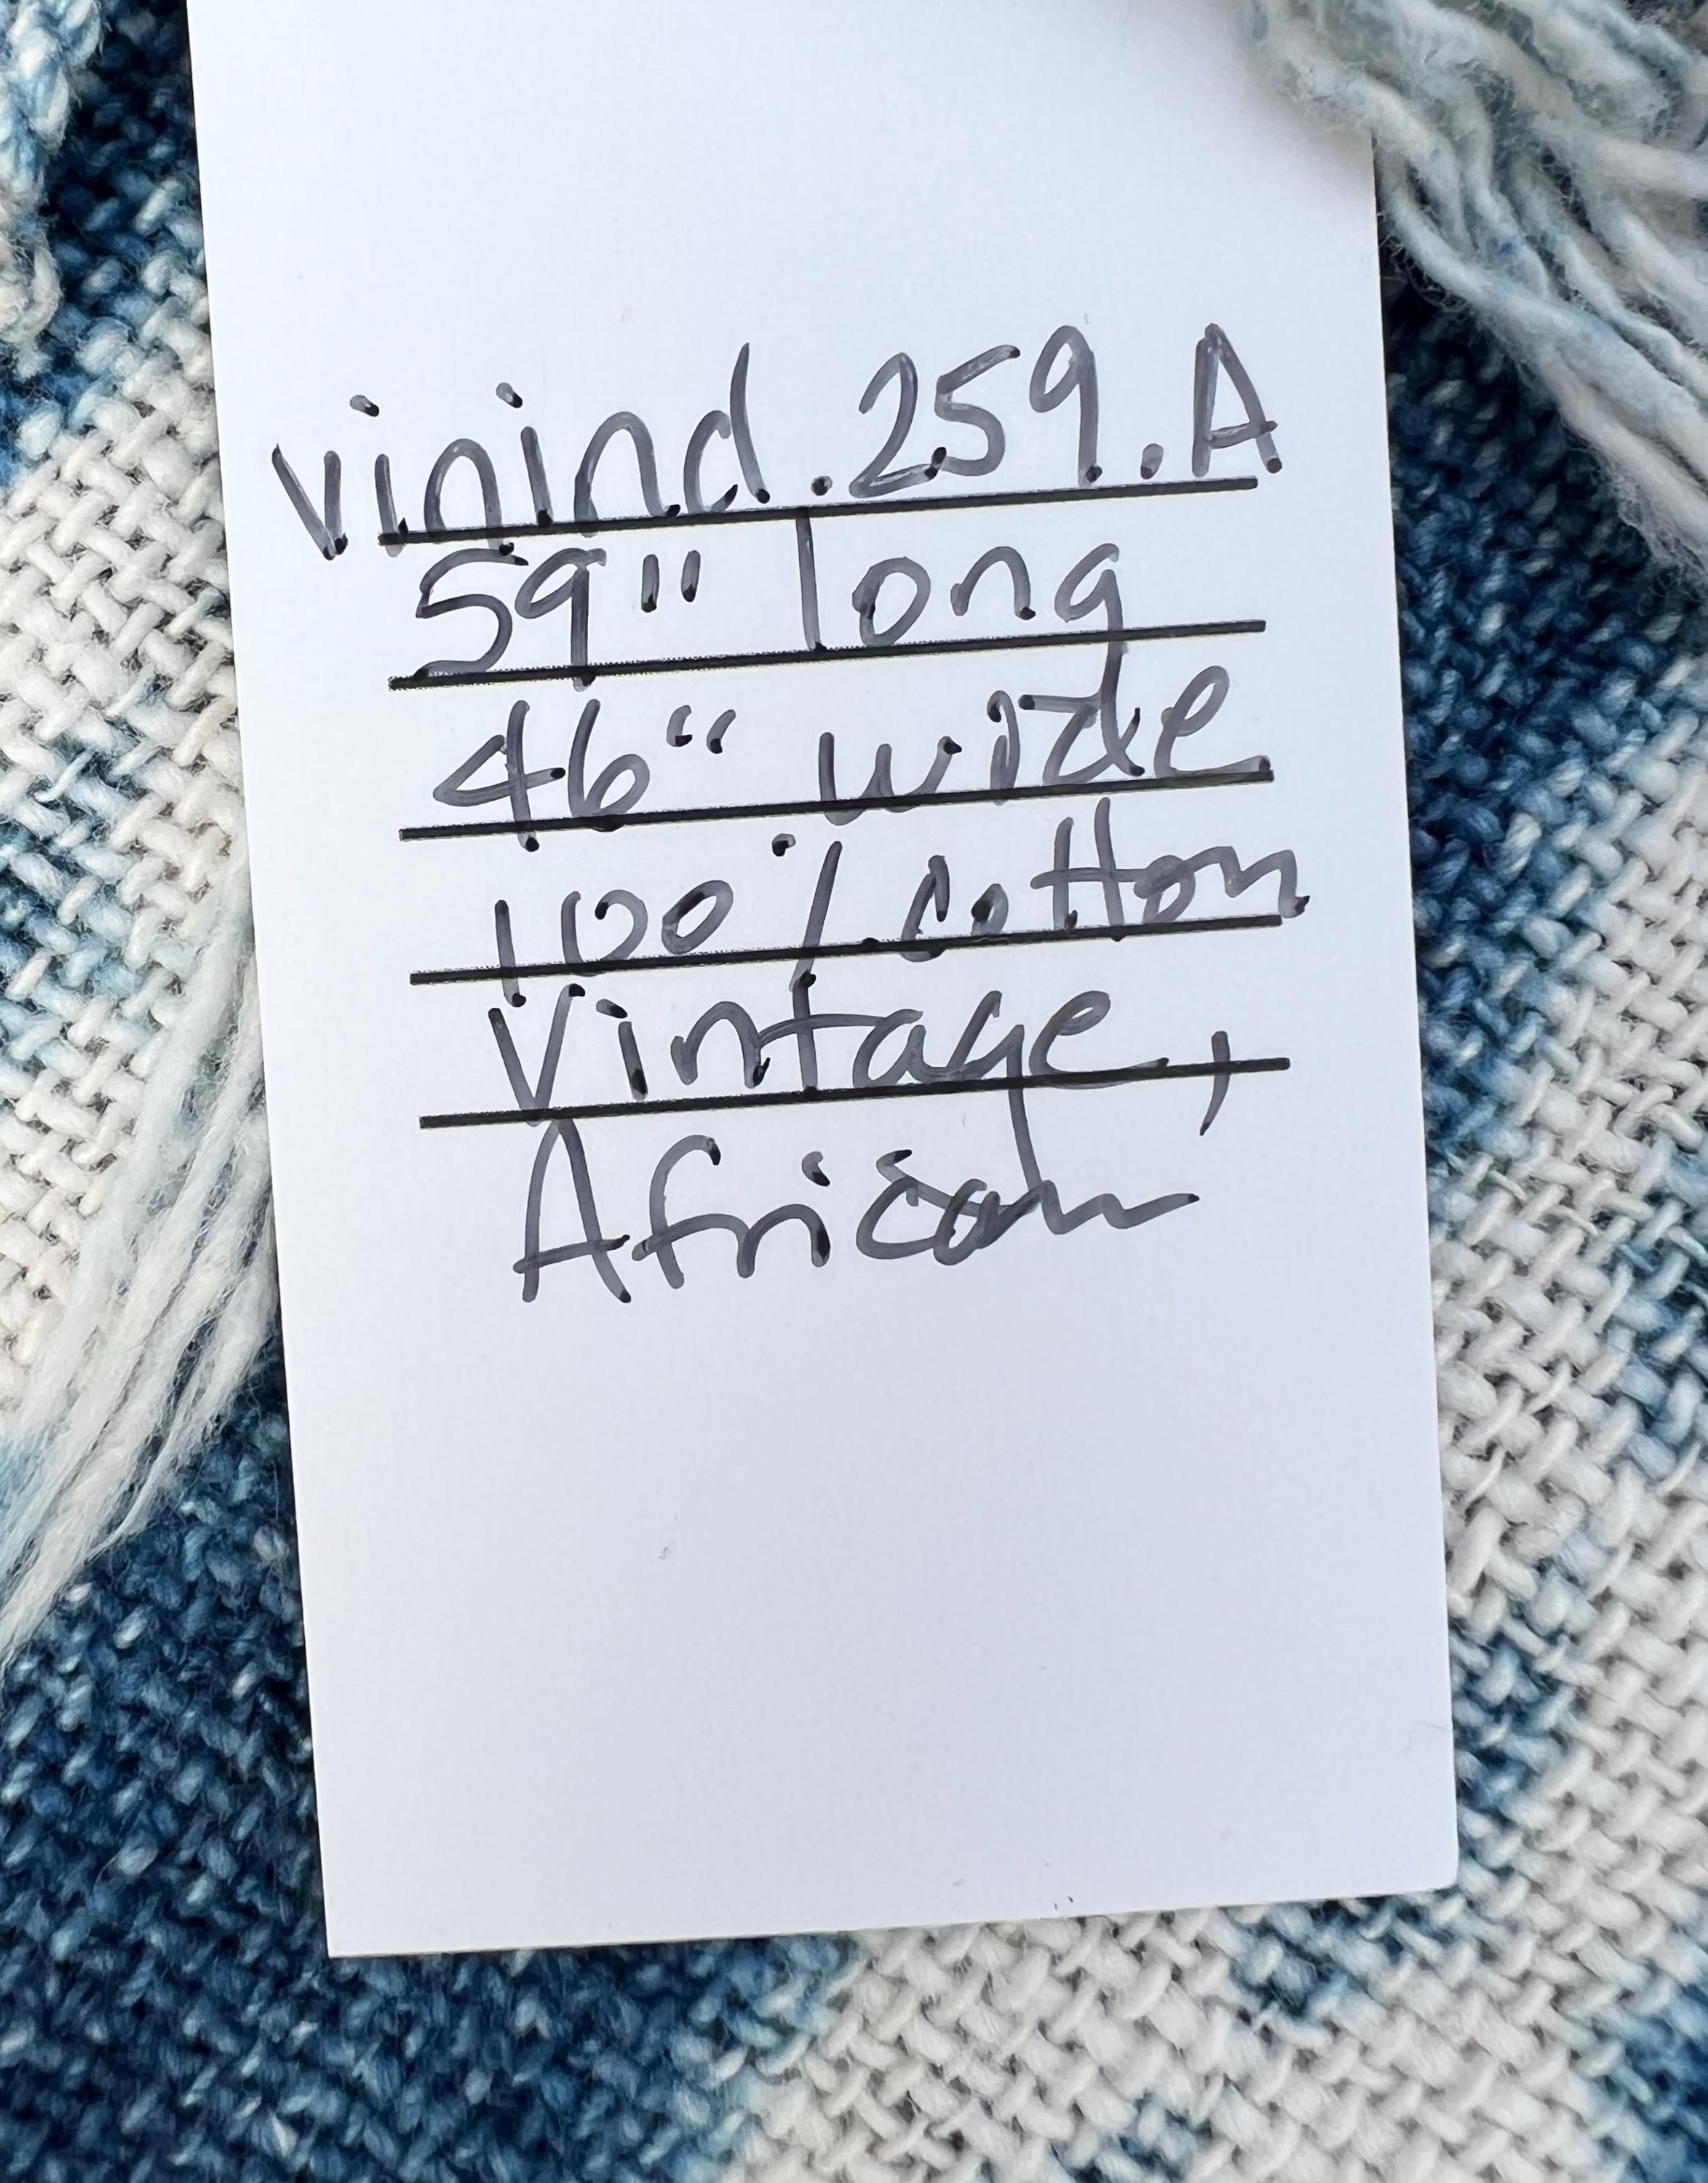 vinind.259.A
59" long
46" wide
100% cotton
Vintage,
African